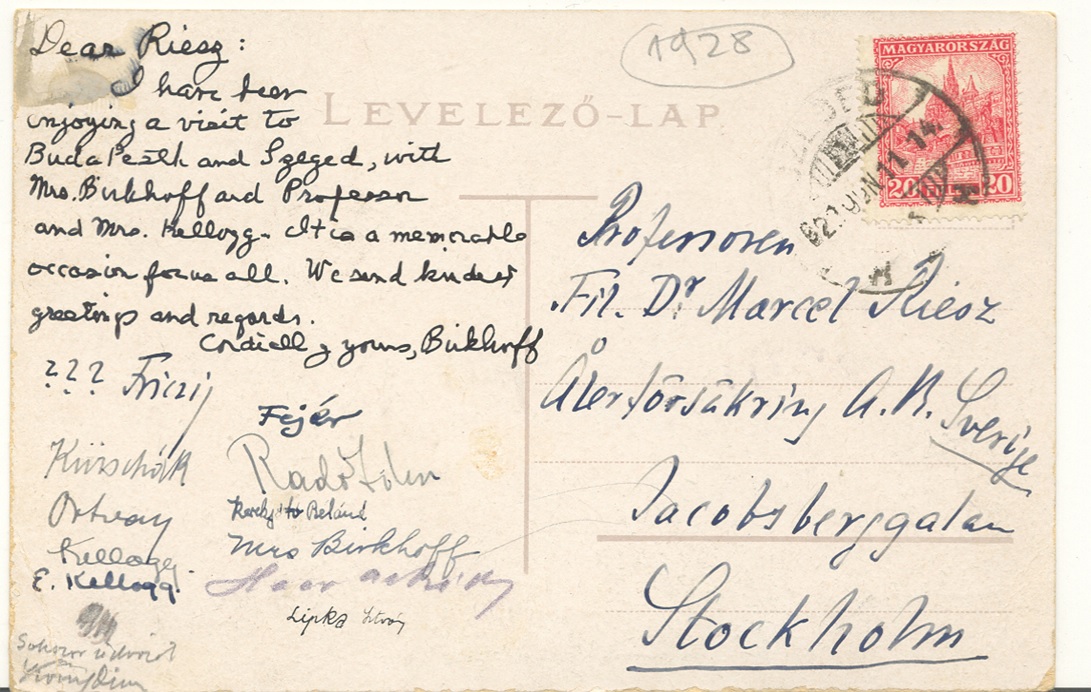 1928
LEVELEZŐ-LAP
MAGYARORSZÁG
20 20
Dear Riesz:
I have been
injoying a visit to
BudaPesth and Szeged, with
Mrs. Birkhoff and Professor
and Mrs. Kellogg. It is a memorable
occasion for us all. We send kindest
greetings and regards.
Cordially yours, Birkhoff
???
Fejér
Kürschák
Radó Tibor
Ortvay
Kerékjártó
Kellogg
Mrs Birkhoff
E. Kellogg
Haar
Lipka István
Professoren
Fil. Dr Marcel Riesz
A.B. Sverige
Jacobsbergsgatan
Stockholm